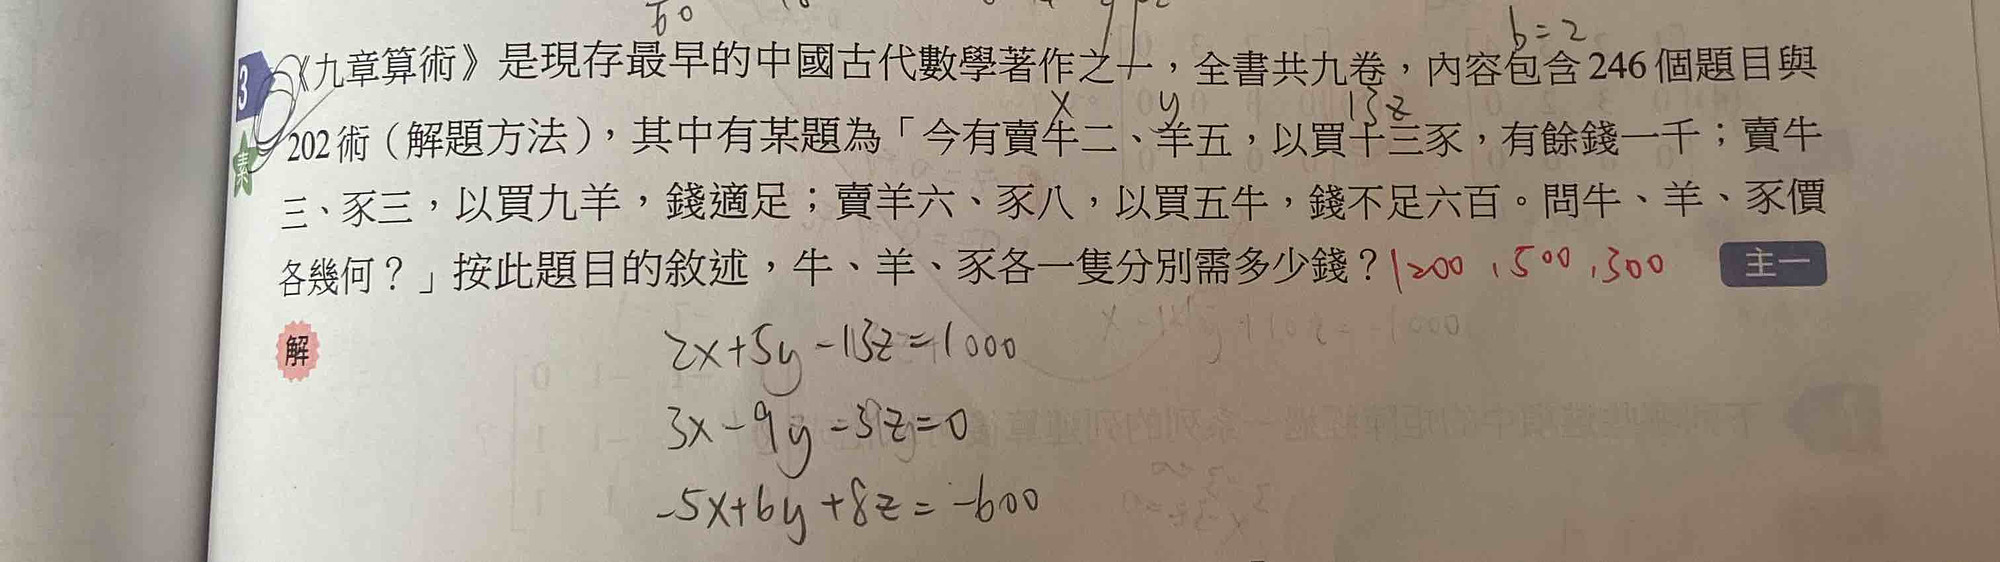 60
b=2
3 《九章算術》是現存最早的中國古代數學著作之一,全書共九卷,內容包含246個題目與
x y 13z
素 202術(解題方法),其中有某題為「今有賣牛二、羊五,以買十三豕,有餘錢一千;賣牛
三、豕三,以買九羊,錢適足;賣羊六、豕八,以買五牛,錢不足六百。問牛、羊、豕價
各幾何?」按此題目的敘述,牛、羊、豕各一隻分別需多少錢?1200,500,300 主一
解
2x+5y-13z=1000
3x-9y=3z=0
-5x+6y+8z=-600